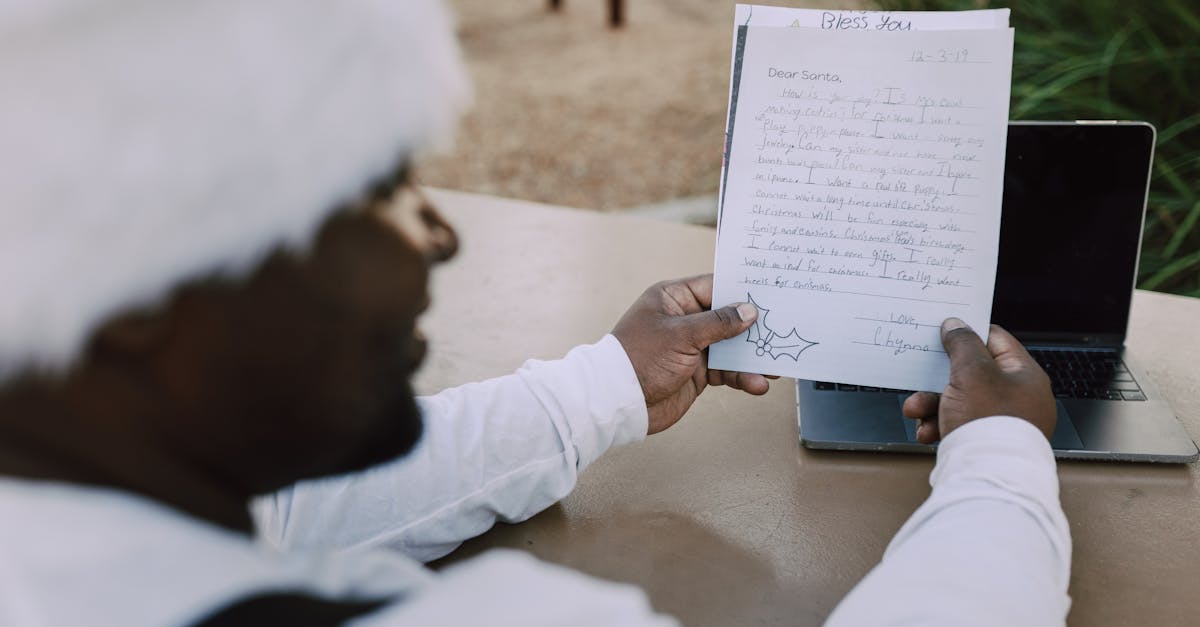 Bless You
12-3-19
Dear Santa,
How is your day? Is Mrs
making cookies for christmas I want a
Play puppy please. I want
jewelry. Can my sister and me have
Can my sister and I have
an iphone. I want a real life puppy. I
cannot wait a long time until christmas.
Christmas will be fun especialy with
family and cousins. Christmas is birthday.
I cannot wait to open gifts. I really
want an ipad for christmas. I really want
heels for chrismas.
Love,
Chynna